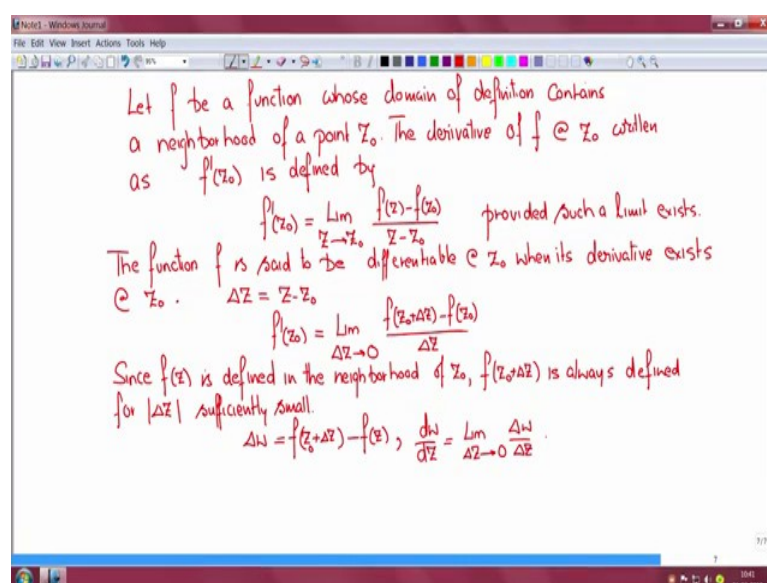 Note1 - Windows Journal
File Edit View Insert Actions Tools Help
Let f be a function whose domain of definition contains
a neighborhood of a point z₀. The derivative of f @ z₀ written
as f'(z₀) is defined by
f'(z₀) = Lim z→z₀ (f(z)-f(z₀))/(z-z₀) provided such a limit exists.
The function f is said to be differentiable @ z₀ when its derivative exists
@ z₀. Δz = z-z₀
f'(z₀) = Lim Δz→0 (f(z₀+Δz)-f(z₀))/Δz
Since f(z) is defined in the neighborhood of z₀, f(z₀+Δz) is always defined
for |Δz| sufficiently small.
Δw = f(z₀+Δz)-f(z), dw/dz = Lim Δz→0 Δw/Δz.
7/7
7
10:41